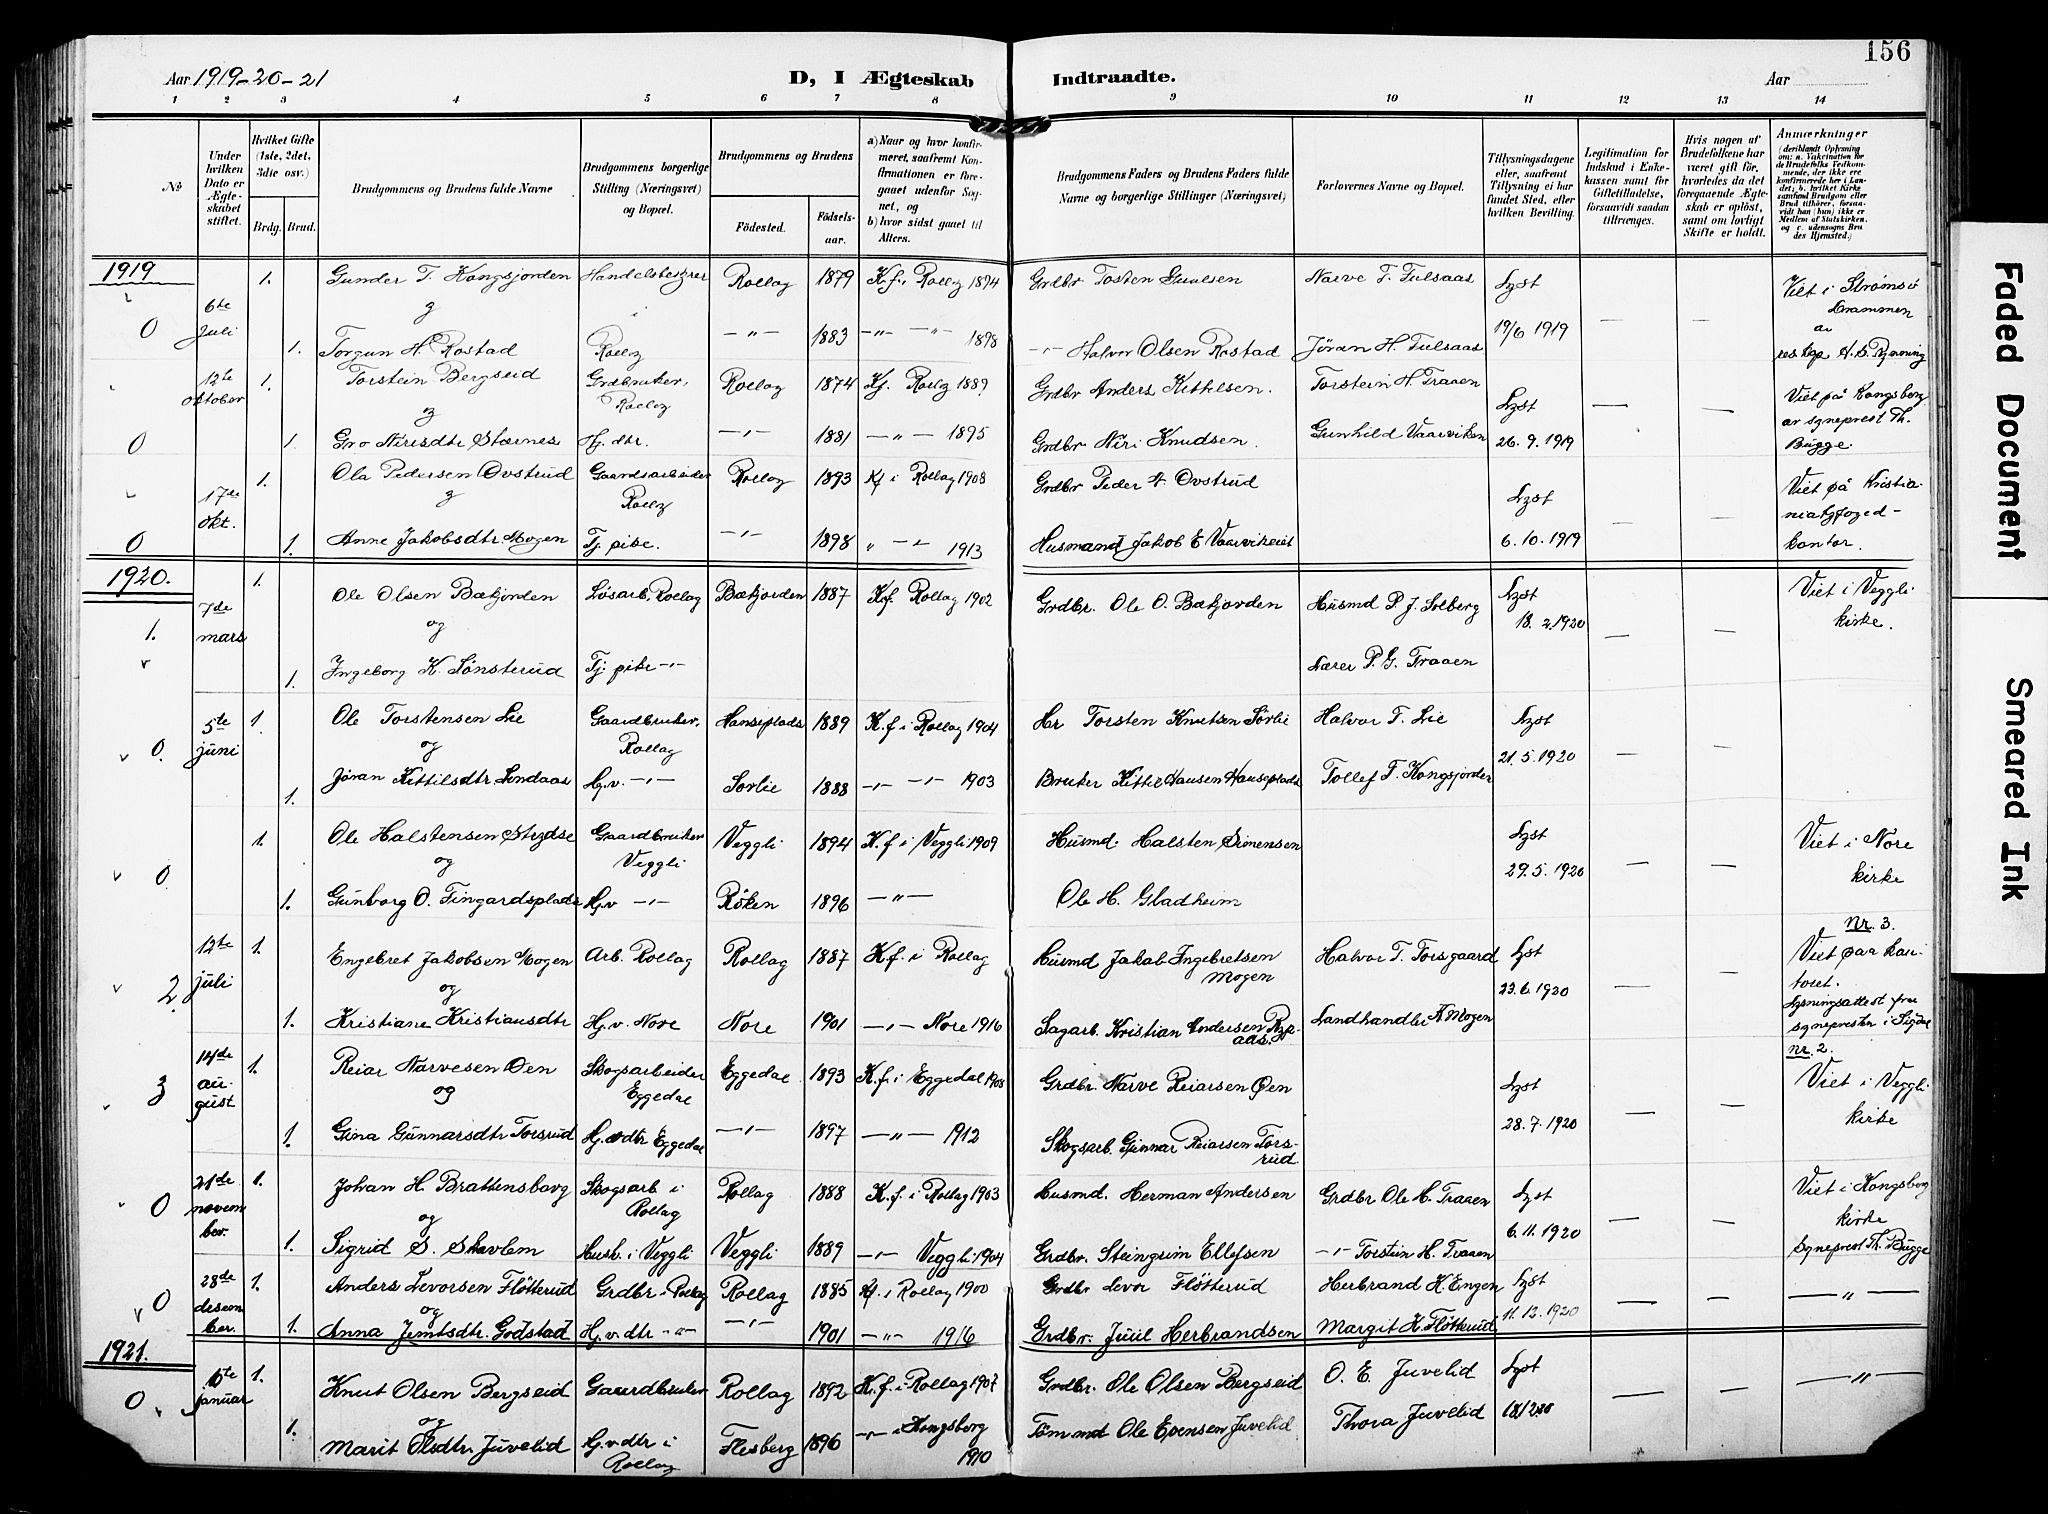 156
Aar 1919-20-21 D, I Ægteskab Indtraadte. Aar
1 2 3 4 5 6 7 8 9 10 11 12 13 14
No
Under hvilken Dato er Ægteskabet stiftet.
Hvilket Gifte (1ste, 2det, 3die osv.)
Brdg. Brud.
Brudgommens og Brudens fulde Navne
Brudgommens borgerlige Stilling (Næringsvei) og Bopæl.
Brudgommens og Brudens
Fødested.
Fødsels-aar.
a) Naar og hvor konfirmeret, saafremt Konfirmationen er foregaaet udenfor Sognet, og
b) hvor sidst gaaet til Alters.
Brudgommens Faders og Brudens Faders fulde Navne og borgerlige Stillinger (Næringsvei)
Forlovernes Navne og Bopæl.
Tillysningsdagene eller, saafremt Tillysning ei har fundet Sted, efter hvilken Bevilling.
Legitimation for Indskud i Enkekassen samt for Giftetilladelse, forsaavidt saadan tiltrænges.
Hvis nogen af Brudefolkene har været gift før, hvorledes da det foregaaende Ægteskab er opløst, samt om lovligt Skifte er holdt.
Anmærkninger (deriblandt Oplysning om: a. Vakcination for de Brudefolks Vedkommende, der ikke ere konfirmerede her i Landet; b. hvilket Kirkesamfund Brudgom eller Brud tilhører, forsaavidt han (hun) ikke er Medlem af Statskirken, og c. udensogns Brudes Hjemsted.)
1919
0 6te Juli 1. Gunder T. Kongsjorden Handelsbestyrer i Rollag 1879 K.f. i Rollag 1894 Grdbr Tosten Gunlsen Narve T. Fulsaas Lyst 19/6 1919 — — Viet i Strømsø Drammen av
og
1. Torgun H. Rostad Rollag —"— 1883 —"— —"— 1898 —"— Halvor Olsen Rostad Jøran H. Fulsaas
0 12te oktober 1. Torstein Bergseid Grdbruker, Rollag Rollag 1874 Kf. Rollag 1889 Grdbr Anders Kittilsen. Torstein H. Traaen Lyst 26.9.1919 — — Viet på Kongsberg av sogneprest Th. Bugge.
og
1. Gro Nirisdtr Stærnes Hj. dtr. —"— 1881 —"— 1895 Grdbr Niri Knudsen. Gunhild Vaarviken
0 17de okt. 1. Ola Pedersen Ovstrud Gaardsarbeider Rollag Rollag 1893 Kf i Rollag 1908 Grdbr Peder A Ovstrud Lyst 6.10.1919 — — Viet på Kristiania byfogedkontor.
og
1. Anne Jakobsdtr Mogen Tj. pike. —"— 1898 " —"— 1913 Husmand Jakob E Vaarvikeiet
1920.
1. 7de mars 1. Ole Olsen Bækjorden Løsarb, Rollag Bækjorden 1887 K.f. Rollag 1902 Grdbr. Ole O. Bækjorden Husmd P. J. Solberg Lyst 18.2.1920 — — Viet i Veggli kirke.
og
1. Ingeborg K. Sønsterud Tj. pike —"— Lærer P. G. Traaen
0. 5te juni 1. Ole Torstensen Lie Gaardbruker, Rollag Hanseplads 1889 K.f i Rollag 1904 Hr Torsten Knutsen Sørlie Halvor T. Lie Lyst 21.5.1920 — —
og
1. Jøran Kittilsdtr Lundaas Hj.v. —"— Sørlie 1888 —"— —"— 1903 Bruker Kittil Hansen Hanseplads Tollef T. Kongsjorden
0 1. Ole Halstensen Strydse Gaardbruker Veggli Veggli 1894 K.f i Veggli 1909 Husmd. Halsten Simensen Lyst 29.5.1920 — — Viet i Nore kirke
og
1. Gunborg O. Tingardsplads Hj.v —"— Røken 1896 —"— Ole H. Gladheim
2. 12te juli 1. Engebret Jakobsen Mogen Arb. Rollag Rollag 1887 K.f. i Rollag Husmd Jakob Ingebretsen Mogen Halvor T. Forsgaard Lyst 23.6.1920 — — nr. 3. Viet paa kontoret. Lysningsattest fra sogneprester i Sigdal
og
1. Kristiane Kristiansdtr Hj.v. Nore Nore 1901 —"— Nore 1916 Sagarb. Kristian Andersen Landhandler K Mogen
3 14de august 1. Reiar Narvesen Øen Skogsarbeider Eggedal Eggedal 1893 K.f. i Eggedal 1908 Grdbr. Narve Reiarsen Øen Lyst 28.7.1920 — — nr. 2. Viet i Veggli kirke
og
1. Gina Gunnarsdtr Torsrud Hj.v.dtr Eggedal —"— 1897 —"— 1912 Skogsarb. Gunnar Reiarsen Torsrud
0 21de november. 1. Johan H. Brattensborg Skogsarb i Rollag Rollag 1888 K.f. i Rollag 1903 Husmd. Herman Andersen Grdbr Ole H. Traaen Lyst 6.11.1920 — — Viet i Kongsberg kirke Sogneprest Th. Bugge
og
1. Sigrid S. Skavlem Husb. i Veggli Veggli 1889 —"— Veggli 1904 Grdbr. Steingrim Ellefsen —"— Torstein H. Traaen
0 28de desember. 1. Anders Levorsen Fløtterud Grdbr i Rollag Rollag 1885 Kf. i Rollag 1900 Grdbr Levor Fløtterud Herbrand H. Engen Lyst 11.12.1920 — — —"—
og
1. Anna Juulsdtr. Godstad Hj.v.dtr —"— —"— 1901 —"— 1916 Grdbr. Juul Herbrandsen Margit K. Fløtterud
1921.
0 6te januar 1. Knut Olsen Bergseid Gaardbruker Rollag 1892 K.f. i Rollag 1907 Grdbr. Ole Olsen Bergseid O. E. Juvelid Lyst 18/12 20 — — —"—
og
1. Marit Olsdtr. Juvelid Hj.v.dtr i Rollag Flesberg 1896 —"— i Kongsberg 1910 Tømmd Ole Evensen Juvelid Thora Juvelid
Faded Document
Smeared Ink